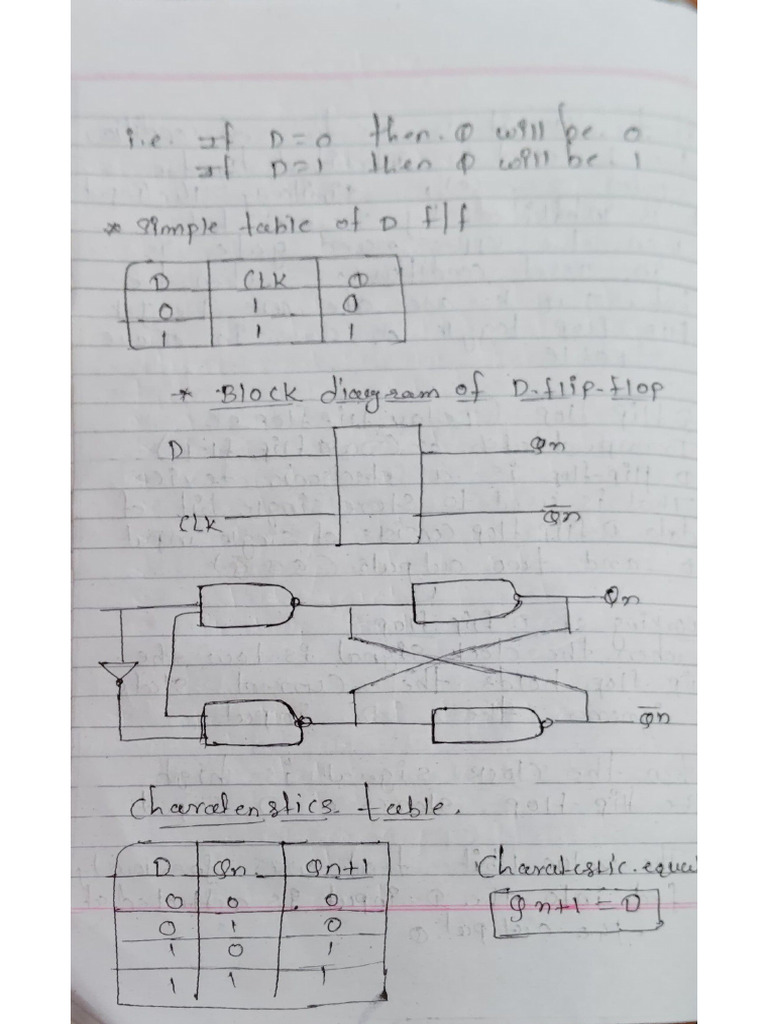 i.e. If D=0 then Q will be 0
If D=1 then Q will be 1
* Simple table of D f/f
D CLK Q
0 1 0
1 1 1
* Block diagram of D-flip-flop
D Qn
CLK Q̅n
Qn
Q̅n
Charatenstics table.
D Qn Qn+1
0 0 0
0 1 0
1 0 1
1 1 1
Charatestic equa
Qn+1 = D